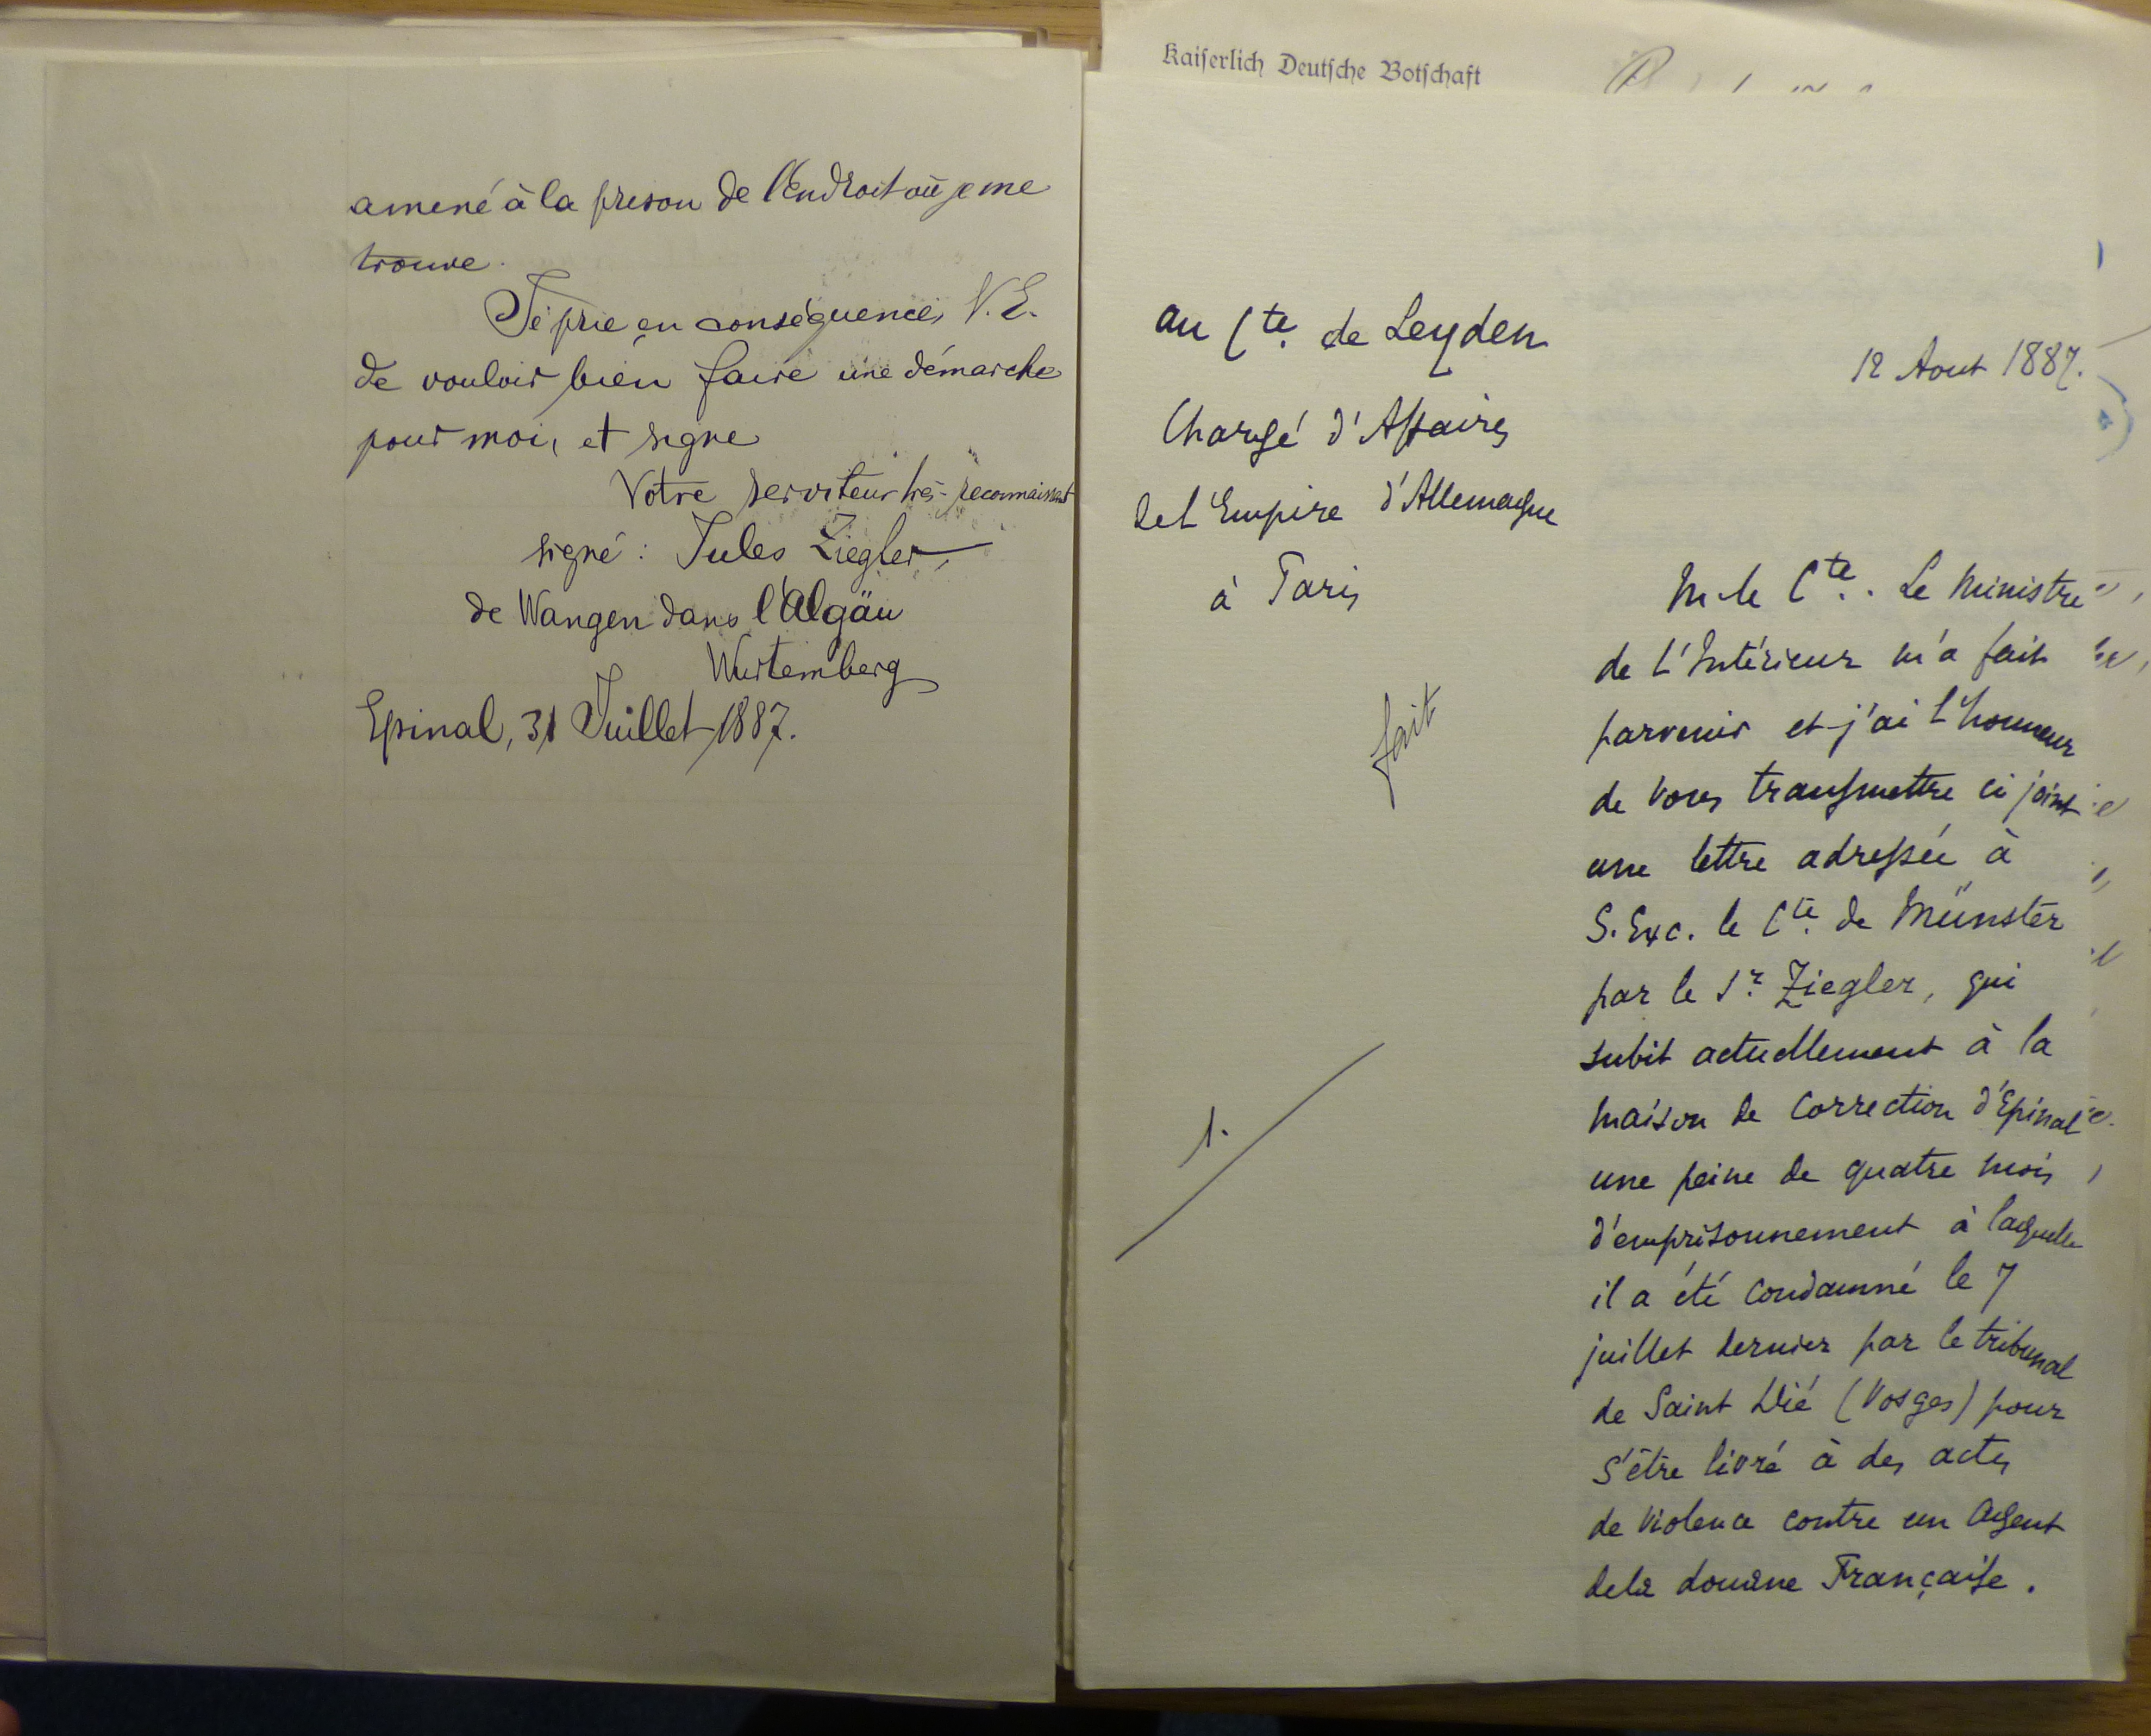 amené à la prison de l'Endroit où je me
trouve.
Je prie en conséquence, V. E.
de vouloir bien faire une démarche
pour moi, et signe
Votre serviteur très-reconnaissant
signé : Jules Ziegler,
de Wangen dans l'Algäu
Wurtemberg
Epinal, 31 Juillet 1887.
Kaiserlich Deutsche Botschaft
au Cte. de Leyden
Chargé d'Affaires
de l'Empire d'Allemagne
à Paris
12 Aout 1887.
fait
1.
M. le Cte. Le Ministre
de l'Intérieur m'a fait
parvenir et j'ai l'honneur
de vous transmettre ci joint
une lettre adressée à
S. Exc. le Cte. de Münster
par le Sr. Ziegler, qui
subit actuellement à la
maison de Correction d'Epinal
une peine de quatre mois
d'emprisonnement à laquelle
il a été condamné le 7
juillet dernier par le tribunal
de Saint Dié (Vosges) pour
s'être livré à des actes
de violence contre un agent
de la douane Française.